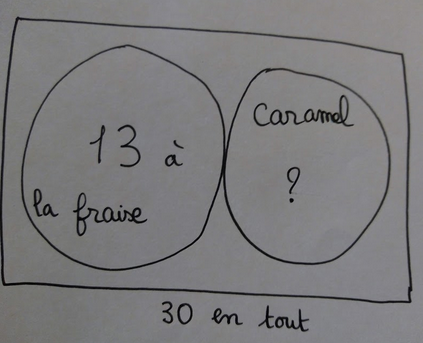 13 à
la fraise
caramel
?
30 en tout